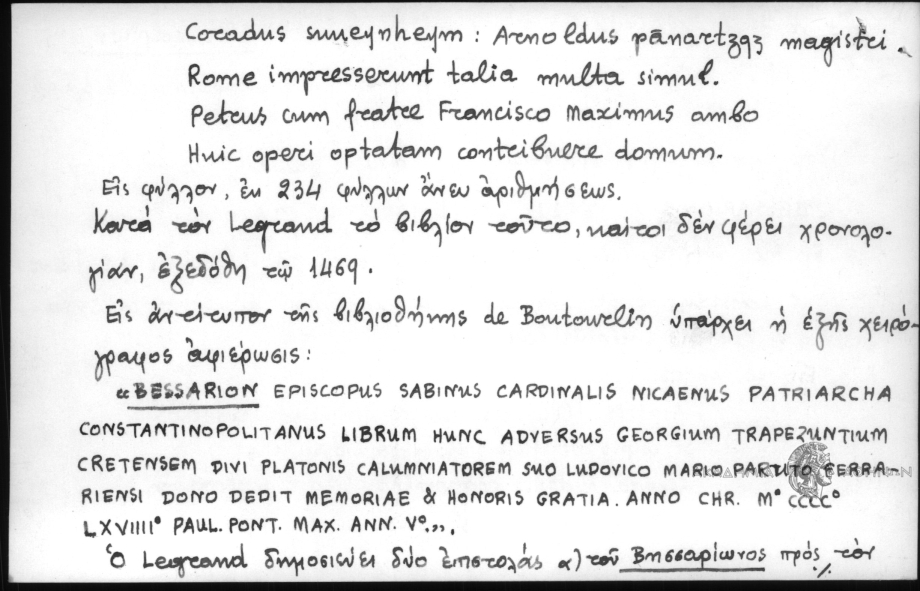 Coradus suueynheym: Arnoldus pānartzqz magistri.
Rome impresserunt talia multa simul.
Petrus cum fratre Francisco Maximus ambo
Huic operi optatam contribuere domum.
Εἰς φύλλον, ἐκ 234 φύλλων ἄνευ ἀριθμήσεως.
Κατά τόν Legrand τό βιβλίον τοῦτο, καίτοι δέν φέρει χρονολο-
γίαν, ἐξεδόθη τῷ 1469.
Εἰς ἀντίτυπον τῆς βιβλιοθήκης de Boutourlin ὑπάρχει ἡ ἑξῆς χειρό-
γραφος ἀφιέρωσις:
«BESSARION EPISCOPUS SABINUS CARDINALIS NICAENUS PATRIARCHA
CONSTANTINOPOLITANUS LIBRUM HUNC ADVERSUS GEORGIUM TRAPEZUNTIUM
CRETENSEM DIVI PLATONIS CALUMNIATOREM SUO LUDOVICO MARIO PARTUTO FERRA-
RIENSI DONO DEDIT MEMORIAE & HONORIS GRATIA. ANNO CHR. M° CCCC°
LXVIIII° PAUL. PONT. MAX. ANN. V°.».
Ὁ Legrand δημοσιεύει δύο ἐπιστολάς α) τοῦ Βησσαρίωνος πρός τόν
./.